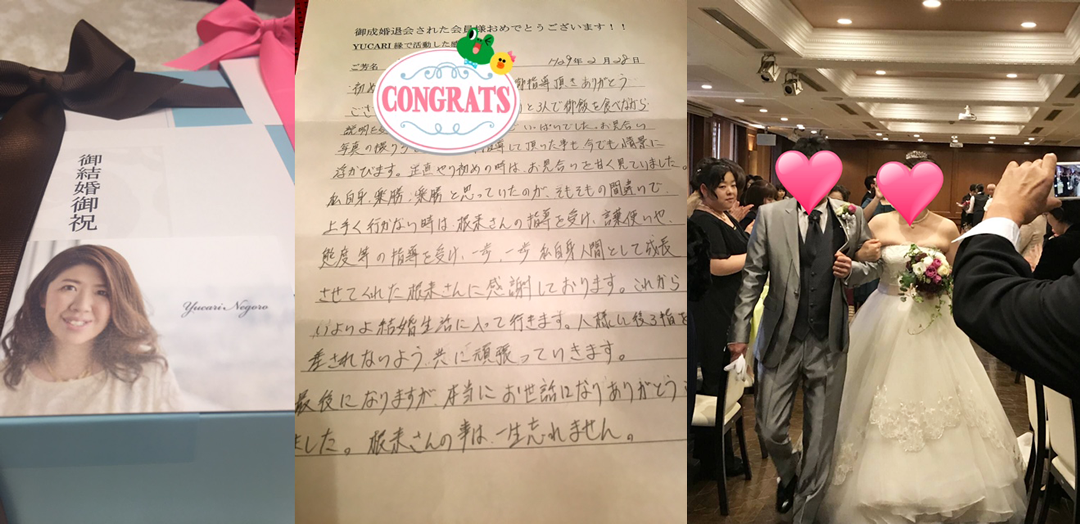 御結婚御祝
Yucari Negoro
御成婚退会された会員様おめでとうございます！！
YUCARI縁で活動した
ご芳名
H29年2月28日
CONGRATS
初め 御指導頂きありがとう
ござ と3人で御飯を食べながら
説明 いっぱいでした。お見合い
写真の撮り 指導して頂いた事も今でも情景に
浮かびます。正直やり初めの時は、お見合いを甘く見ていました。
私自身、楽勝、楽勝と思っていたのが、そもそもの間違いで
上手く行かない時は、根来さんの指導を受け、言葉使いや、
態度等の指導を受け、一歩、一歩、私自身人間として成長
させてくれた根来さんに感謝しております。これから
いよいよ結婚生活に入って行きます。人様に後ろ指を
差されないよう、共に頑張っていきます。
最後になりますが、本当にお世話になりありがとう
ました。根来さんの事は、一生忘れません。